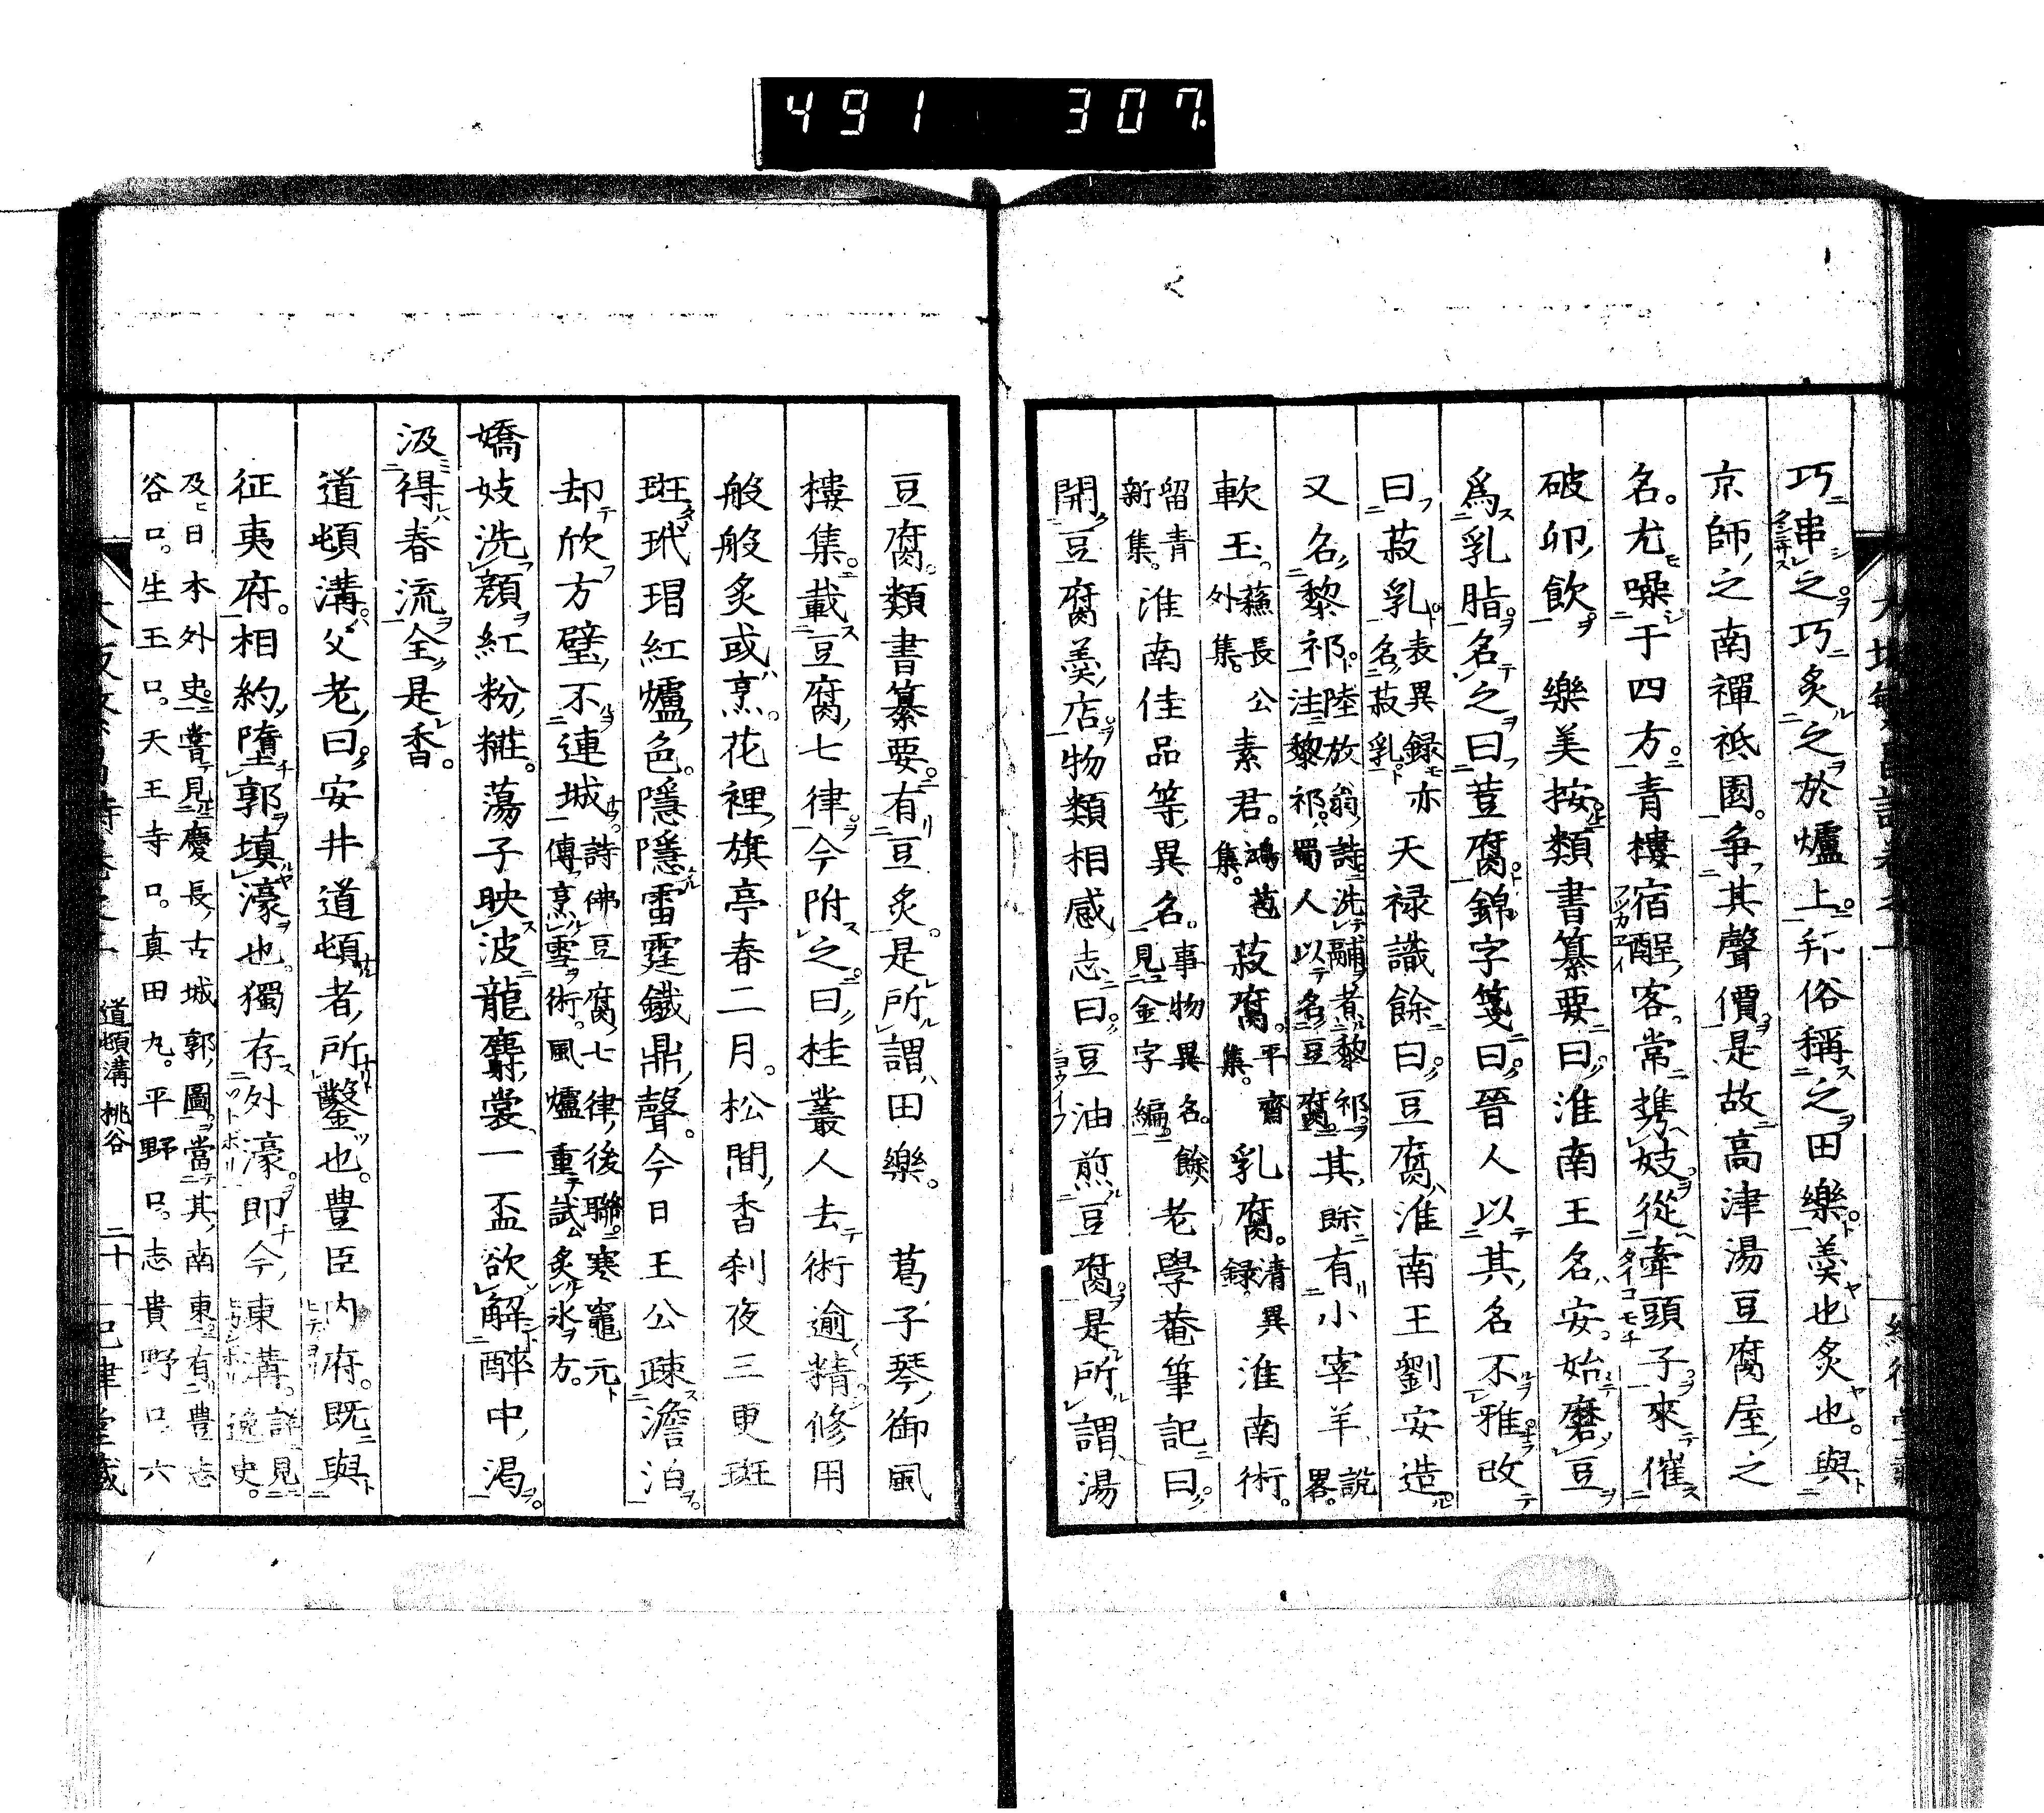 491 307.
巧串之巧炙之於爐上。邦俗稱之田樂。羹也炙也。與
京師之南禪祗園。爭其聲價。是故高津湯豆腐屋之
名。尤噪于四方。青樓宿酲客。常携妓從牽頭子來催
破卯飲。樂美按類書纂要曰。淮南王名安。始磨豆
爲乳脂。名之曰荳腐。錦字箋曰。晉人以其名不雅改
曰菽乳。表異録亦名菽乳。天禄識餘曰。豆腐淮南王劉安造。
又名黎祁。陸放翁詩。洗鬴煮黎祁。注黎祁。蜀人以名豆腐。其餘有小宰羊。説畧。
軟玉。蘇長公外集。素君。鴻苞集。菽腐。平齋集。乳腐。清異録。淮南術。
留青新集。淮南佳品等異名。事物異名。餘見金字編。老學菴筆記曰。
開豆腐羹店。物類相感志曰。豆油煎豆腐。是所謂湯
豆腐。類書纂要。有豆炙。是所謂田樂。葛子琴御風
樓集。載豆腐七律。今附之。曰。桂叢人去術逾精。修用
般般炙或烹。花裡旗亭春二月。松間香刹夜三更。斑
斑玳瑁紅爐色。隱隱雷霆鐵鼎聲。今日王公疎澹泊。
却欣方璧不連城。詩佛豆腐七律後聯。寒竈元傳烹雪術。風爐重試炙氷方。
嬌妓洗顔紅粉糚。蕩子映波龍麝裳。一盃欲解醉中渇。
汲得春流全是香。
道頓溝。父老曰。安井道頓者所鑿也。豊臣内府。既與
征夷府。相約墮郭填濠也。獨存外濠。即今東溝。詳見逸史。
及日本外史。嘗見慶長古城郭圖。當其南東。有豊志
谷口。生玉口。天王寺口。真田丸。平野口。志貴野口。六
道頓溝 桃谷 二十